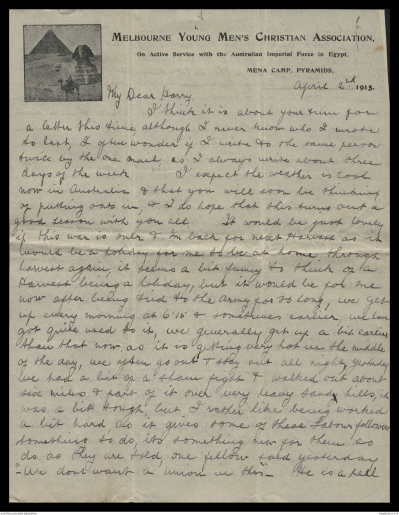 MELBOURNE YOUNG MEN'S CHRISTIAN ASSOCIATION,
On Active Service with the Australian Imperial Force in Egypt.
MENA CAMP, PYRAMIDS,
April 2nd 1915.
My Dear Harry,
I think it is about your turn for
a letter this time, although I never know who I wrote
to last, I often wonder if I write to the same person
twice by the one mail, as I always write about three
days of the week. I expect the weather is cool
now in Australia & that you will soon be thinking
of putting oats in & I do hope that this turns out a
good season with you all It would be just lovely
if this war is over & I'm back for next Harvest as it
would be a holiday for me to be at home through
harvest again, it seems a bit funny to think of a
Harvest being a holiday, but it would be for me
now after being tied to the army for so long, we get
up every morning at 6.15 & sometimes earlier, we have
got quite used to it, we generally get up a bit earlier
than that now as it is getting very hot in the middle
of the day, we often go out & stay out all night, yesterday
we had a bit of a sham fight & walked out about
six miles & part of it over very heavy sand hills, it
was a bit tough, but I rather like being worked
a bit hard as it gives some of these Labour followers
something to do, its something new for them to
do as they are told, one fellow said yesterday
"We don't want a union in this" He is a real